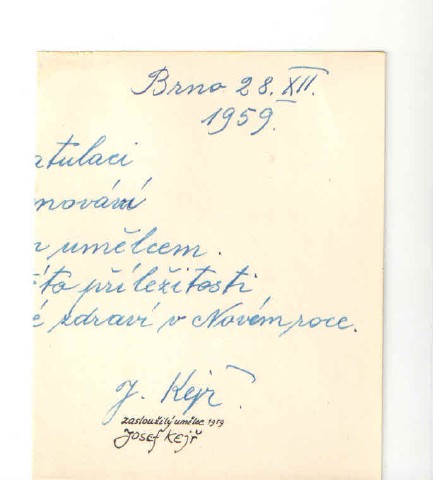 Brno 28. XII.
1959.
atulaci
nování
m umělcem.
éto příležitosti
é zdraví v Novém roce.
J. Kejř
zasloužilý umělec 1959
Josef Kejř